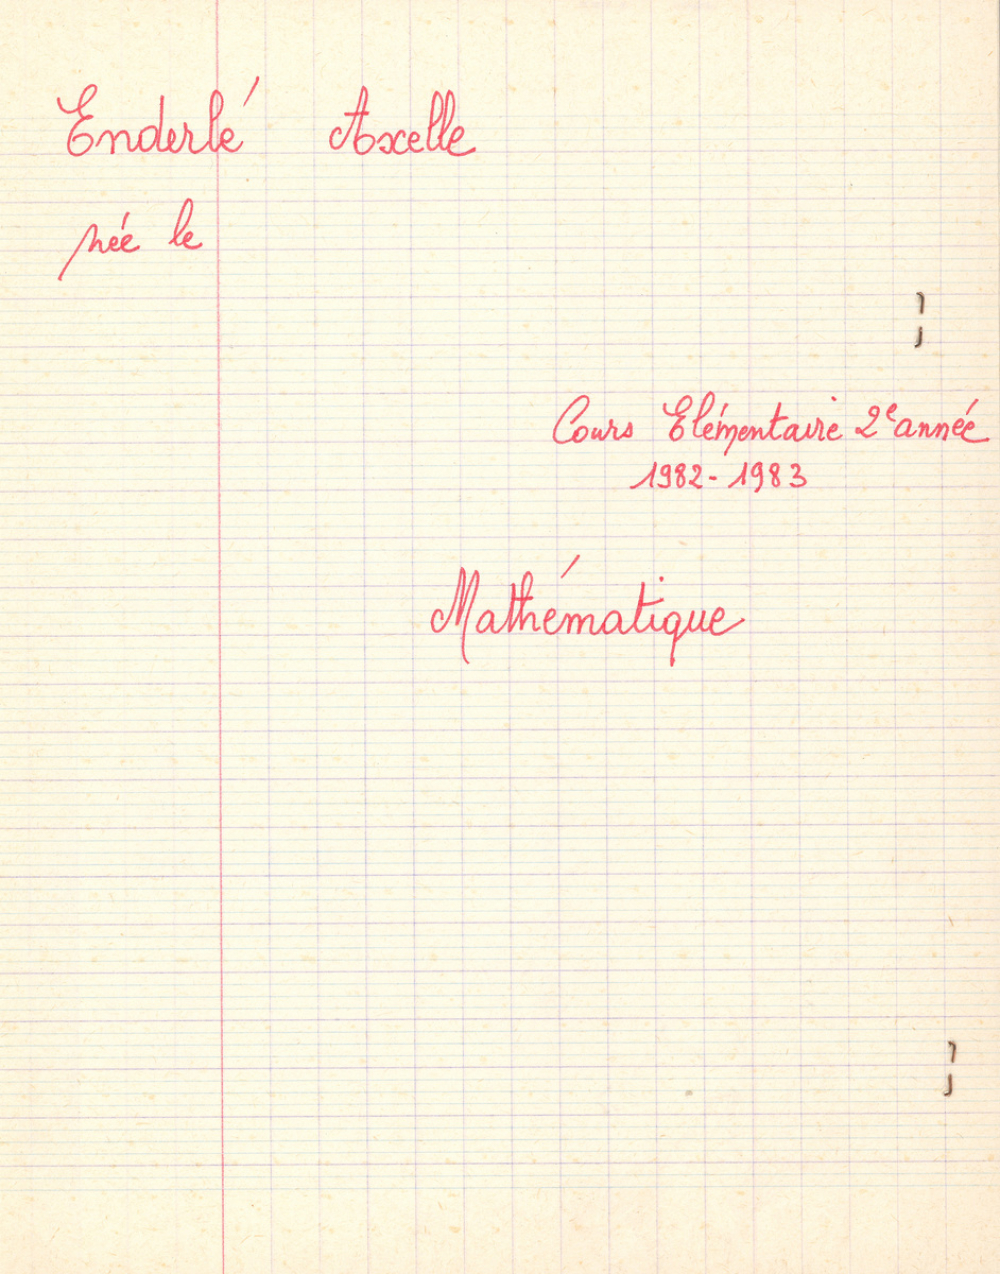 Enderlé Axelle
née le
Cours Elémentaire 2e année
1982-1983
Mathématique